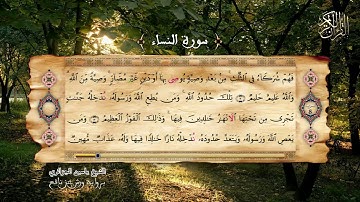 سورة النساء
فَهُمْ شُرَكَاءُ فِي الثُّلُثِ مِنْ بَعْدِ وَصِيَّةٍ يُوصِي بِهَا أَوْ دَيْنٍ غَيْرَ مُضَارٍّ وَصِيَّةً مِنَ اللَّهِ
وَاللَّهُ عَلِيمٌ حَلِيمٌ تِلْكَ حُدُودُ اللَّهِ وَمَنْ يُطِعِ اللَّهَ وَرَسُولَهُ نُدْخِلْهُ جَنَّاتٍ
تَجْرِي مِنْ تَحْتِهَا الْأَنْهَارُ خَالِدِينَ فِيهَا وَذَلِكَ الْفَوْزُ الْعَظِيمُ وَمَنْ
يَعْصِ اللَّهَ وَرَسُولَهُ وَيَتَعَدَّ حُدُودَهُ نُدْخِلْهُ نَارًا خَالِدًا فِيهَا وَلَهُ عَذَابٌ مُهِينٌ
الشيخ ياسين الجزائري
برواية ورش عن نافع